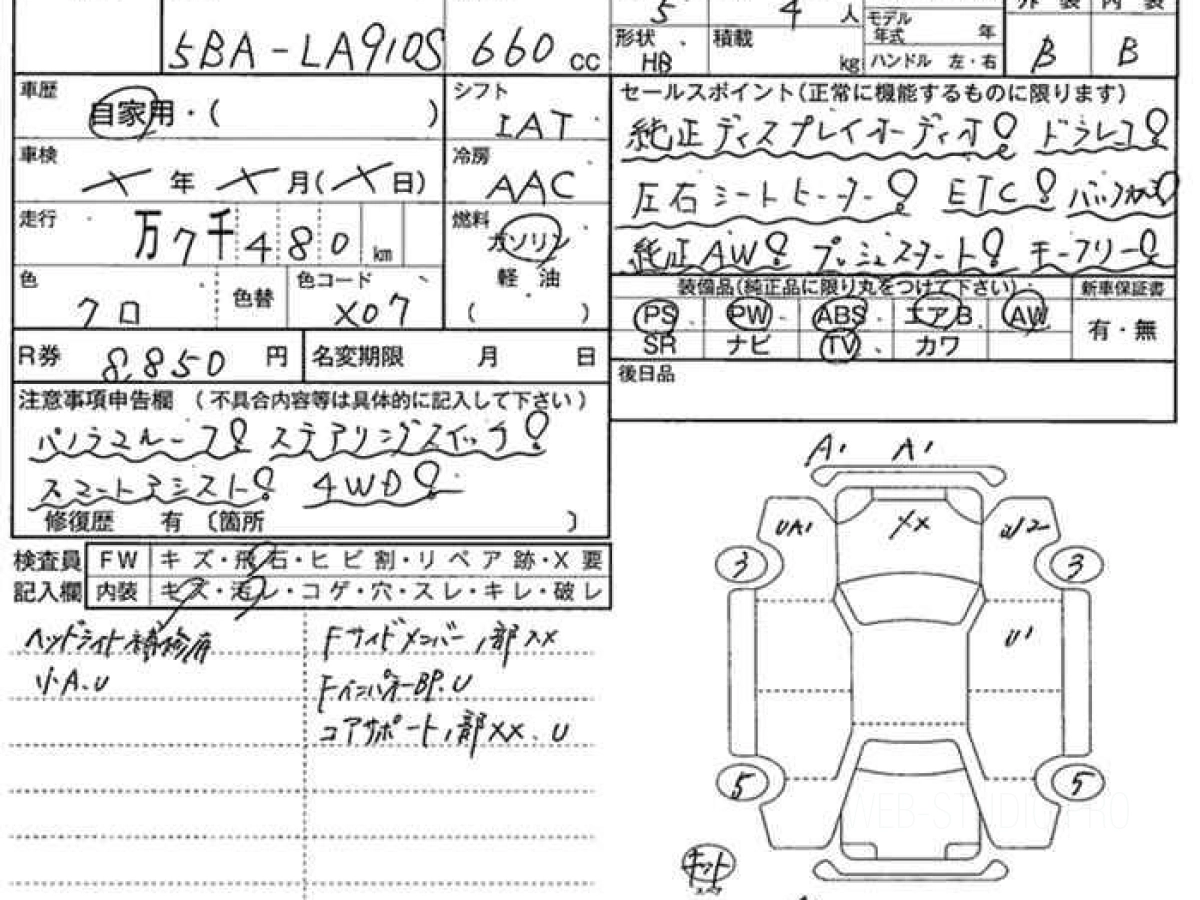 5 4 人
モデル年式 年
外装 内装
5BA-LA910S 660 cc
形状 HB 積載 kg
ハンドル 左・右
B B
車歴 自家用・( )
シフト IAT
車検 × 年 × 月(× 日)
冷房 AAC
走行 万7千480km
燃料 ガソリン
軽油
( )
色 クロ 色替 色コード X07
セールスポイント(正常に機能するものに限ります)
純正ディスプレイオーディオ! ドラレコ!
左右シートヒーター! ETC! バックカメラ!
純正AW! プッシュスタート! キーフリー!
装備品(純正品に限り丸をつけて下さい) 新車保証書
PS PW ABS エアB AW 有・無
SR ナビ TV カワ
R券 8,850 円 名変期限 月 日
後日品
注意事項申告欄 (不具合内容等は具体的に記入して下さい)
パノラマルーフ! ステアリングスイッチ!
スマートアシスト! 4WD!
修復歴 有 〔箇所 〕
検査員記入欄
FW キズ・飛石・ヒビ割・リペア跡・X要
内装 キズ・汚レ・コゲ・穴・スレ・キレ・破レ
ヘッドライト補修痕
小A.U
Fサイドメンバー1部XX
FインパネBP.U
コアサポート1部XX、U
A1 A1
UA1 XX W2
3 3
U1
5 5
キット
WEB-STUDIO PRO